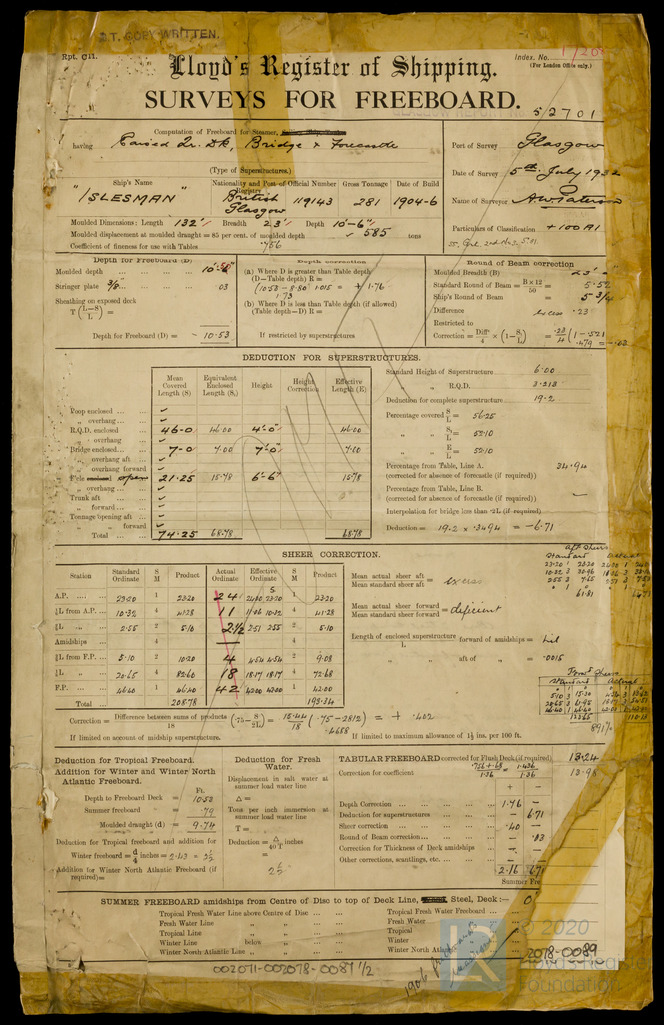 L.T. COPY WRITTEN.
Rpt. C11.
Index. No.
(For London Office only.)
Lloyd's Register of Shipping.
SURVEYS FOR FREEBOARD.
52701
Computation of Freeboard for Steamer,
having Raised Qr. Dk, Bridge & Forecastle
(Type of Superstructures.)
Port of Survey Glasgow
Date of Survey 5th July 1932
Name of Surveyor A W Paterson
Particulars of Classification +100A1
Ship's Name
Nationality and Port of Registry
Official Number
Gross Tonnage
Date of Build
"ISLESMAN"
British Glasgow
119143
281
1904-6
Moulded Dimensions: Length 132' Breadth 23' Depth 10'-6"
Moulded displacement at moulded draught = 85 per cent. of moulded depth 585 tons
Coefficient of fineness for use with Tables .756
Depth for Freeboard (D)
Moulded depth
Stringer plate 3/8 .03
Sheathing on exposed deck
T (L-S / L) =
Depth for Freeboard (D) = 10.53
Depth correction
(a) Where D is greater than Table depth
(D—Table depth) R =
(10.53 - 8.80) 1.015 = + 1.76
1.73
(b) Where D is less than Table depth (if allowed)
(Table depth—D) R =
If restricted by superstructures
Round of Beam correction
Moulded Breadth (B) 23'
Standard Round of Beam = B × 12 / 50 = 5.52
Ship's Round of Beam = 5 3/4
Difference excess .23
Restricted to
Correction = Diff / 4 × (1 - S₁ / L) = .23 / 4 (1 - .521
.479 = -.03
Deduction for Superstructures.
Mean Covered Length (S)
Equivalent Enclosed Length (S₁)
Height
Height Correction
Effective Length (E)
Poop enclosed
„ overhang
R.Q.D. enclosed 46-0 46.00 4'-0" 46.00
„ overhang
Bridge enclosed 7-0 7.00 7'-0" 7.00
„ overhang aft
„ overhang forward
F'cle open 21.25 15.78 6'-6" 15.78
„ overhang
Trunk aft
„ forward
Tonnage opening aft
„ forward
Total 74.25 68.78 68.78
Standard Height of Superstructure 6.00
„ „ R.Q.D. 3.213
Deduction for complete superstructure 19.2
Percentage covered S / L = 56.25
„ „ S₁ / L = 52.10
„ „ E / L = 52.10
Percentage from Table, Line A. 34.94
(corrected for absence of forecastle (if required))
Percentage from Table, Line B.
(corrected for absence of forecastle (if required))
Interpolation for bridge less than .2L (if required)
Deduction = 19.2 × .3494 = -6.71
Sheer Correction.
Station
Standard Ordinate
S M
Product
Actual Ordinate
Effective Ordinate
S M
Product
A.P. 23.20 1 23.20 24 24.00 23.20 1 23.20
⅙L from A.P. 10.32 4 41.28 11 10.32 4 41.28
⅓L „ 2.55 2 5.10 2½ 2.51 2.55 2 5.10
Amidships 4 4
⅓L from F.P. 5.10 2 10.20 4 4.54 4.54 2 9.08
⅙L „ 20.65 4 82.60 18 18.17 18.17 4 72.68
F.P. 46.40 1 46.40 42 42.00 42.00 1 42.00
Total 208.78 193.34
Mean actual sheer aft / Mean standard sheer aft = excess
Mean actual sheer forward / Mean standard sheer forward = deficient
Length of enclosed superstructure / L forward of amidships = nil
„ „ aft of „ = .0015
Correction = Difference between sums of products / 18 (.75 - S / 2L) = 15.44 / 18 (.75 - .2812) = + .402
.4688
If limited on account of midship superstructure.
If limited to maximum allowance of 1½ ins. per 100 ft.
aft Sheer
Standard
61.81
Forwd Sheer
Standard Actual
123.65
89%
Deduction for Tropical Freeboard.
Addition for Winter and Winter North Atlantic Freeboard.
Ft.
Depth to Freeboard Deck = 10.53
Summer freeboard = .79
Moulded draught (d) = 9.74
Deduction for Tropical freeboard and addition for
Winter freeboard = d / 4 inches = 2.43 = 2½
Addition for Winter North Atlantic Freeboard (if required) =
Deduction for Fresh Water.
Displacement in salt water at summer load water line
Δ =
Tons per inch immersion at summer load water line
T =
Deduction = Δ / 40 T inches
=
2½
TABULAR FREEBOARD corrected for Flush Deck (if required) 13.24
Correction for coefficient .756 + .68 / 1.36 = 1.436 / 1.36
+ -
Depth Correction 1.76 -
Deduction for superstructures - 6.71
Sheer correction .40 -
Round of Beam correction - .03
Correction for Thickness of Deck amidships - -
Other corrections, scantlings, etc.
2.16
Summer Fre
SUMMER FREEBOARD amidships from Centre of Disc to top of Deck Line, Steel, Deck:— 0
Tropical Fresh Water Line above Centre of Disc
Fresh Water Line „ „
Tropical Line „ „
Winter Line below „
Winter North Atlantic Line „ „
Tropical Fresh Water Freeboard
Fresh Water „
Tropical „
Winter „
Winter North Atlan
2078-0089
002071-002078-0089 1/2
© 2020
Lloyd's Register
Foundation